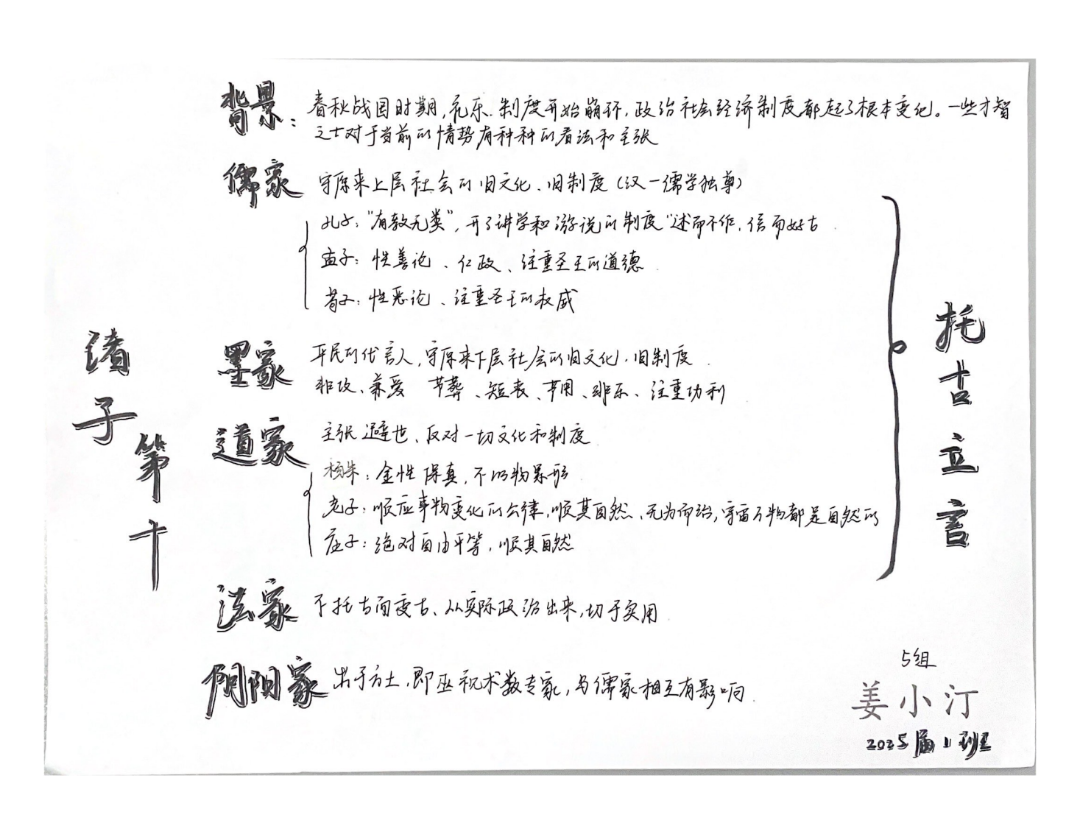 诸子第十
背景：春秋战国时期，礼乐、制度开始崩坏，政治社会经济制度都起了根本变化。一些才智
之士对于当前的情势有种种的看法和主张
儒家 守原来上层社会的旧文化、旧制度（汉一儒学独尊）
孔子："有教无类"，开了讲学和游说的制度"述而不作，信而好古
孟子：性善论、仁政、注重圣王的道德
荀子：性恶论、注重圣王的权威
墨家 平民的代言人，守原来下层社会的旧文化、旧制度
非攻、兼爱 节葬、短丧、节用、非乐、注重功利
道家 主张避世、反对一切文化和制度
杨朱：全性保真，不以物累形
老子：顺应事物变化的公律，顺其自然、无为而治，宇宙万物都是自然的
庄子：绝对自由平等，顺其自然
托古立言
法家 不托古而变古、从实际政治出来，切于实用
阴阳家 出于方士，即巫祝术数专家，与儒家相互有影响
5组
姜小汀
2025届11班